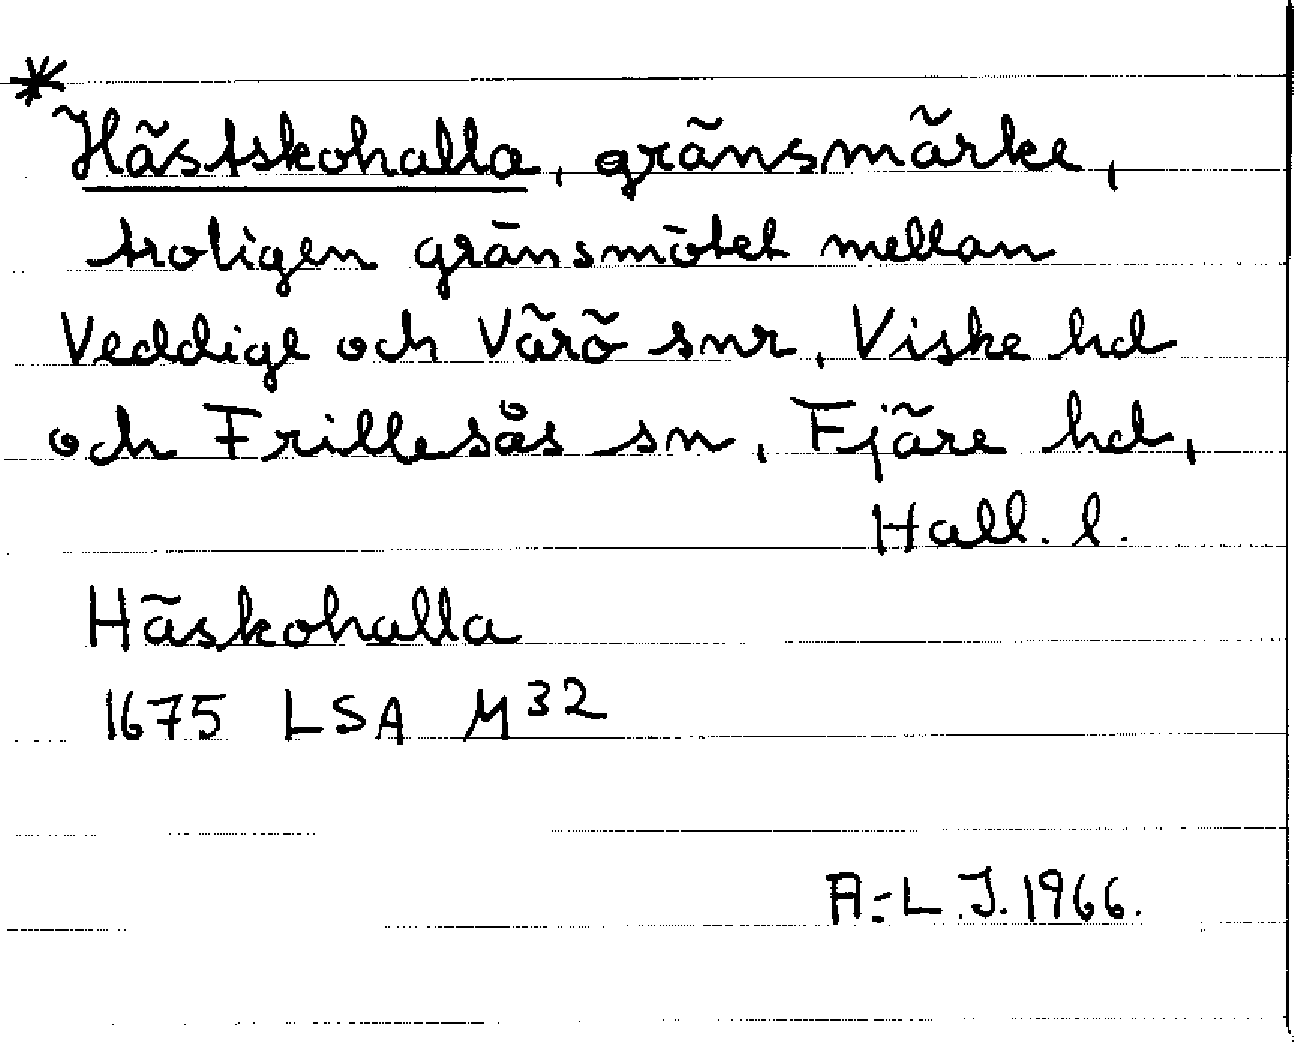 * Hästskohalla, gränsmärke,
troligen gränsmötet mellan
Veddige och Värö snr, Viske hd
och Frillesås sn, Fjäre hd,
Hall. l.
Häskohalla
1675 LSA M32
A.-L.J. 1966.